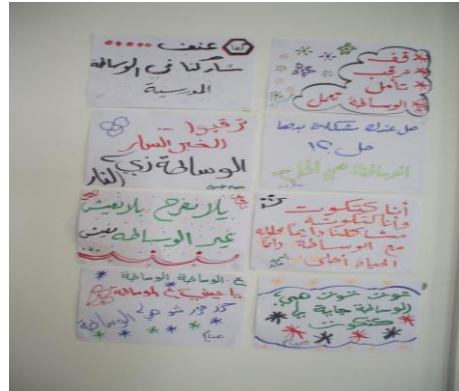 كفا عنف .....
شاركنا في الوساطة
المدرسية
قف
راقب
تأمل
الوساطة تعمل
ترقبوا ...
الخبر السار
الوساطة زي النار
هل عندك مشكلة بدها
حل ؟!
الوساطة هي الحل
يلا نفرح يلا نعيش
غير الوساطة مفيش
أنا كتكوت
وأنا كتكوتة
مشاكلنا دايما محلوله
مع الوساطة دايما
الحياة أحلى
ع الوساطة الوساطة
يا عيني ع الوساطة
شو هي الوساطة
توت توت هي
الوساطة جاية
كتكوت